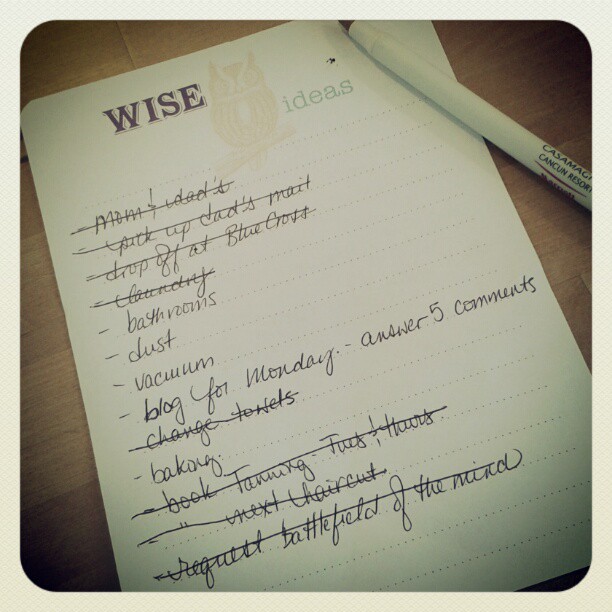 WISE ideas
- mom & dad's
- pick up dad's mail
- drop off at BlueCross
- laundry
- bathrooms
- dust
- vacuum
- blog for Monday - answer 5 comments
- change towels
- baking
- book Tanning - Tues & Thurs
- " next haircut
- request battlefield of the mind
CASAMAG
CANCUN RESOR